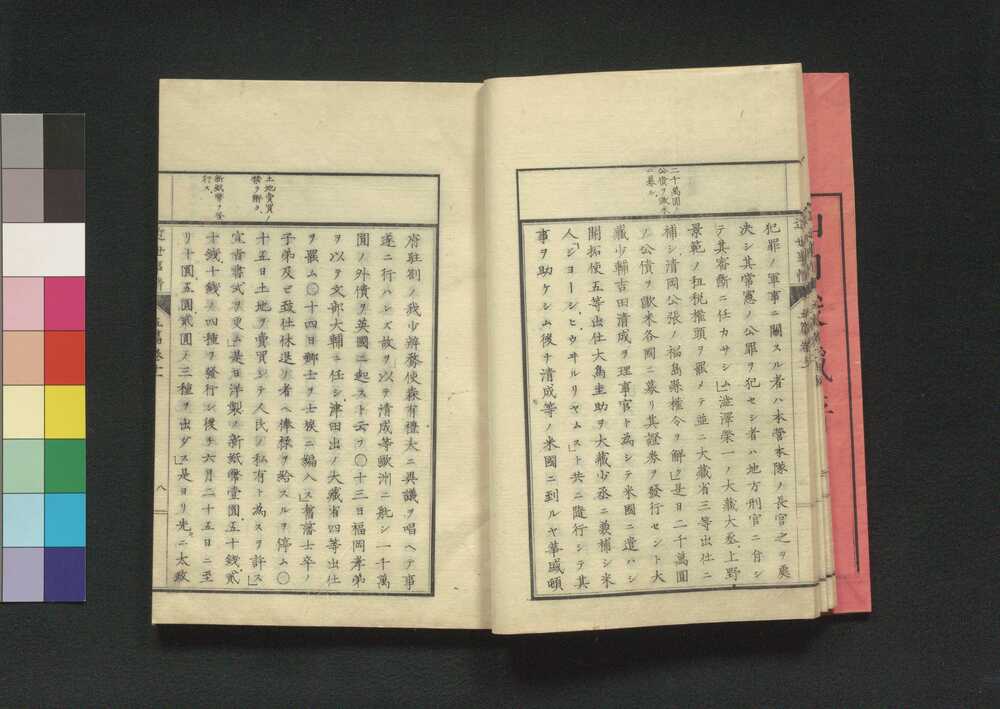 二十萬圓ノ
公債ヲ歐米
ニ募ル
犯罪ノ軍事ニ關スル者ハ本營本隊ノ長官之ヲ處
決シ其常憲ノ公罪ヲ犯セシ者ハ地方刑官ニ付シ
テ其審斷ニ任カサシム」澁澤榮一ノ大藏大丞上野
景範ノ租税權頭ヲ罷メテ並ニ大藏省三等出仕ニ
補シ清岡公張ノ福島縣權令ヲ解ク」是日二千萬圓
ノ公債ヲ歐米各國ニ募リ其證券ヲ發行セント大
藏少輔吉田清成ヲ理事官ト為シテ米國ニ遣ハシ
開拓使五等出仕大鳥圭助ヲ大藏少丞ニ兼補シ米
人「ジヨージ、ヒウヰルリヤムス」ト共ニ隨行シテ其
事ヲ助ケシム後チ清成等ノ米國ニ到ルヤ華盛頓
土地賣買ノ
禁ヲ解ク
新紙幣ヲ發
行ス
府駐劄ノ我少辨務使森有禮太ニ異議ヲ唱ヘテ事
遂ニ行ハレズ故ヲ以テ清成等歐洲ニ航シ一千萬
圓ノ外債ヲ英國ニ起スト云フ〇十三日福岡孝弟
ヲ以テ文部大輔ニ任シ津田出ノ大藏省四等出仕
ヲ罷ム〇十四日郷士ヲ士族ニ編入ス」舊藩士卒ノ
子弟及ビ致仕休退ノ者ヘ俸祿ヲ給スルヲ停ム〇
十五日土地ヲ賣買シテ人民ノ私有ト為スヲ許ス」
宣旨書式ヲ更ム」是日洋製ノ新紙幣壹圓五十錢貳
十錢十錢ノ四種ヲ發行シ後チ六月二十五日ニ至
リ十圓五圓貳圓ノ三種ヲ出ダス」是ヨリ先キ太政
八